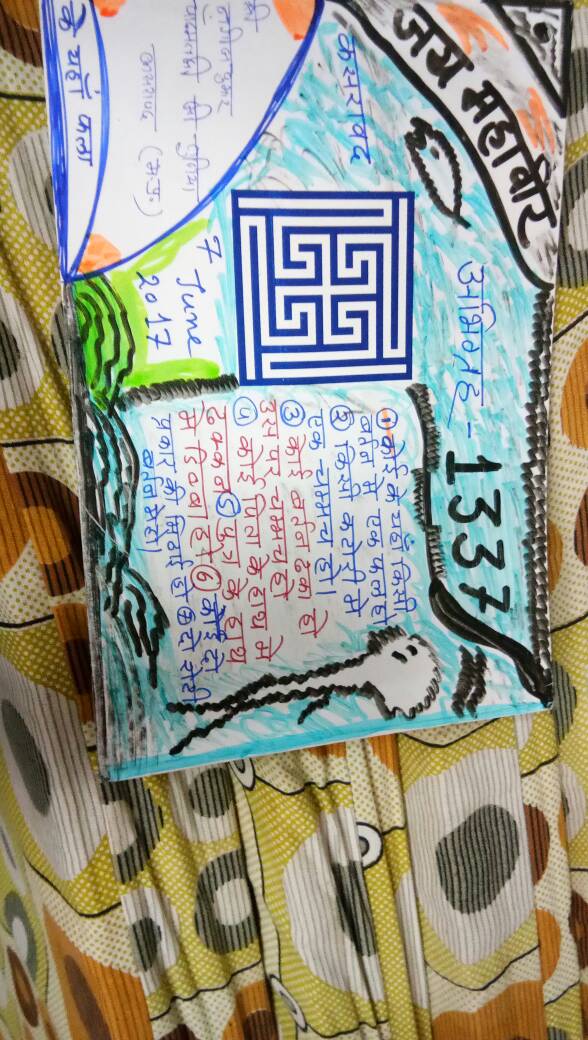 जय महावीर
अभिग्रह - 1337
कसरावद
7 June
2017
① कोई के यहाँ किसी
बर्तन में एक फल हो
② किसी कटोरी में
एक चम्मच हो।
③ कोई बर्तन ढका हो
उस पर चम्मच हो
④ कोई पिता के हाथ में
ढक्कन ⑤ पुत्र के हाथ
में डिब्बा हो ⑥ कोई दो
प्रकार की मिठाई हो
बर्तन में हो।
श्री
की
के यहाँ फला